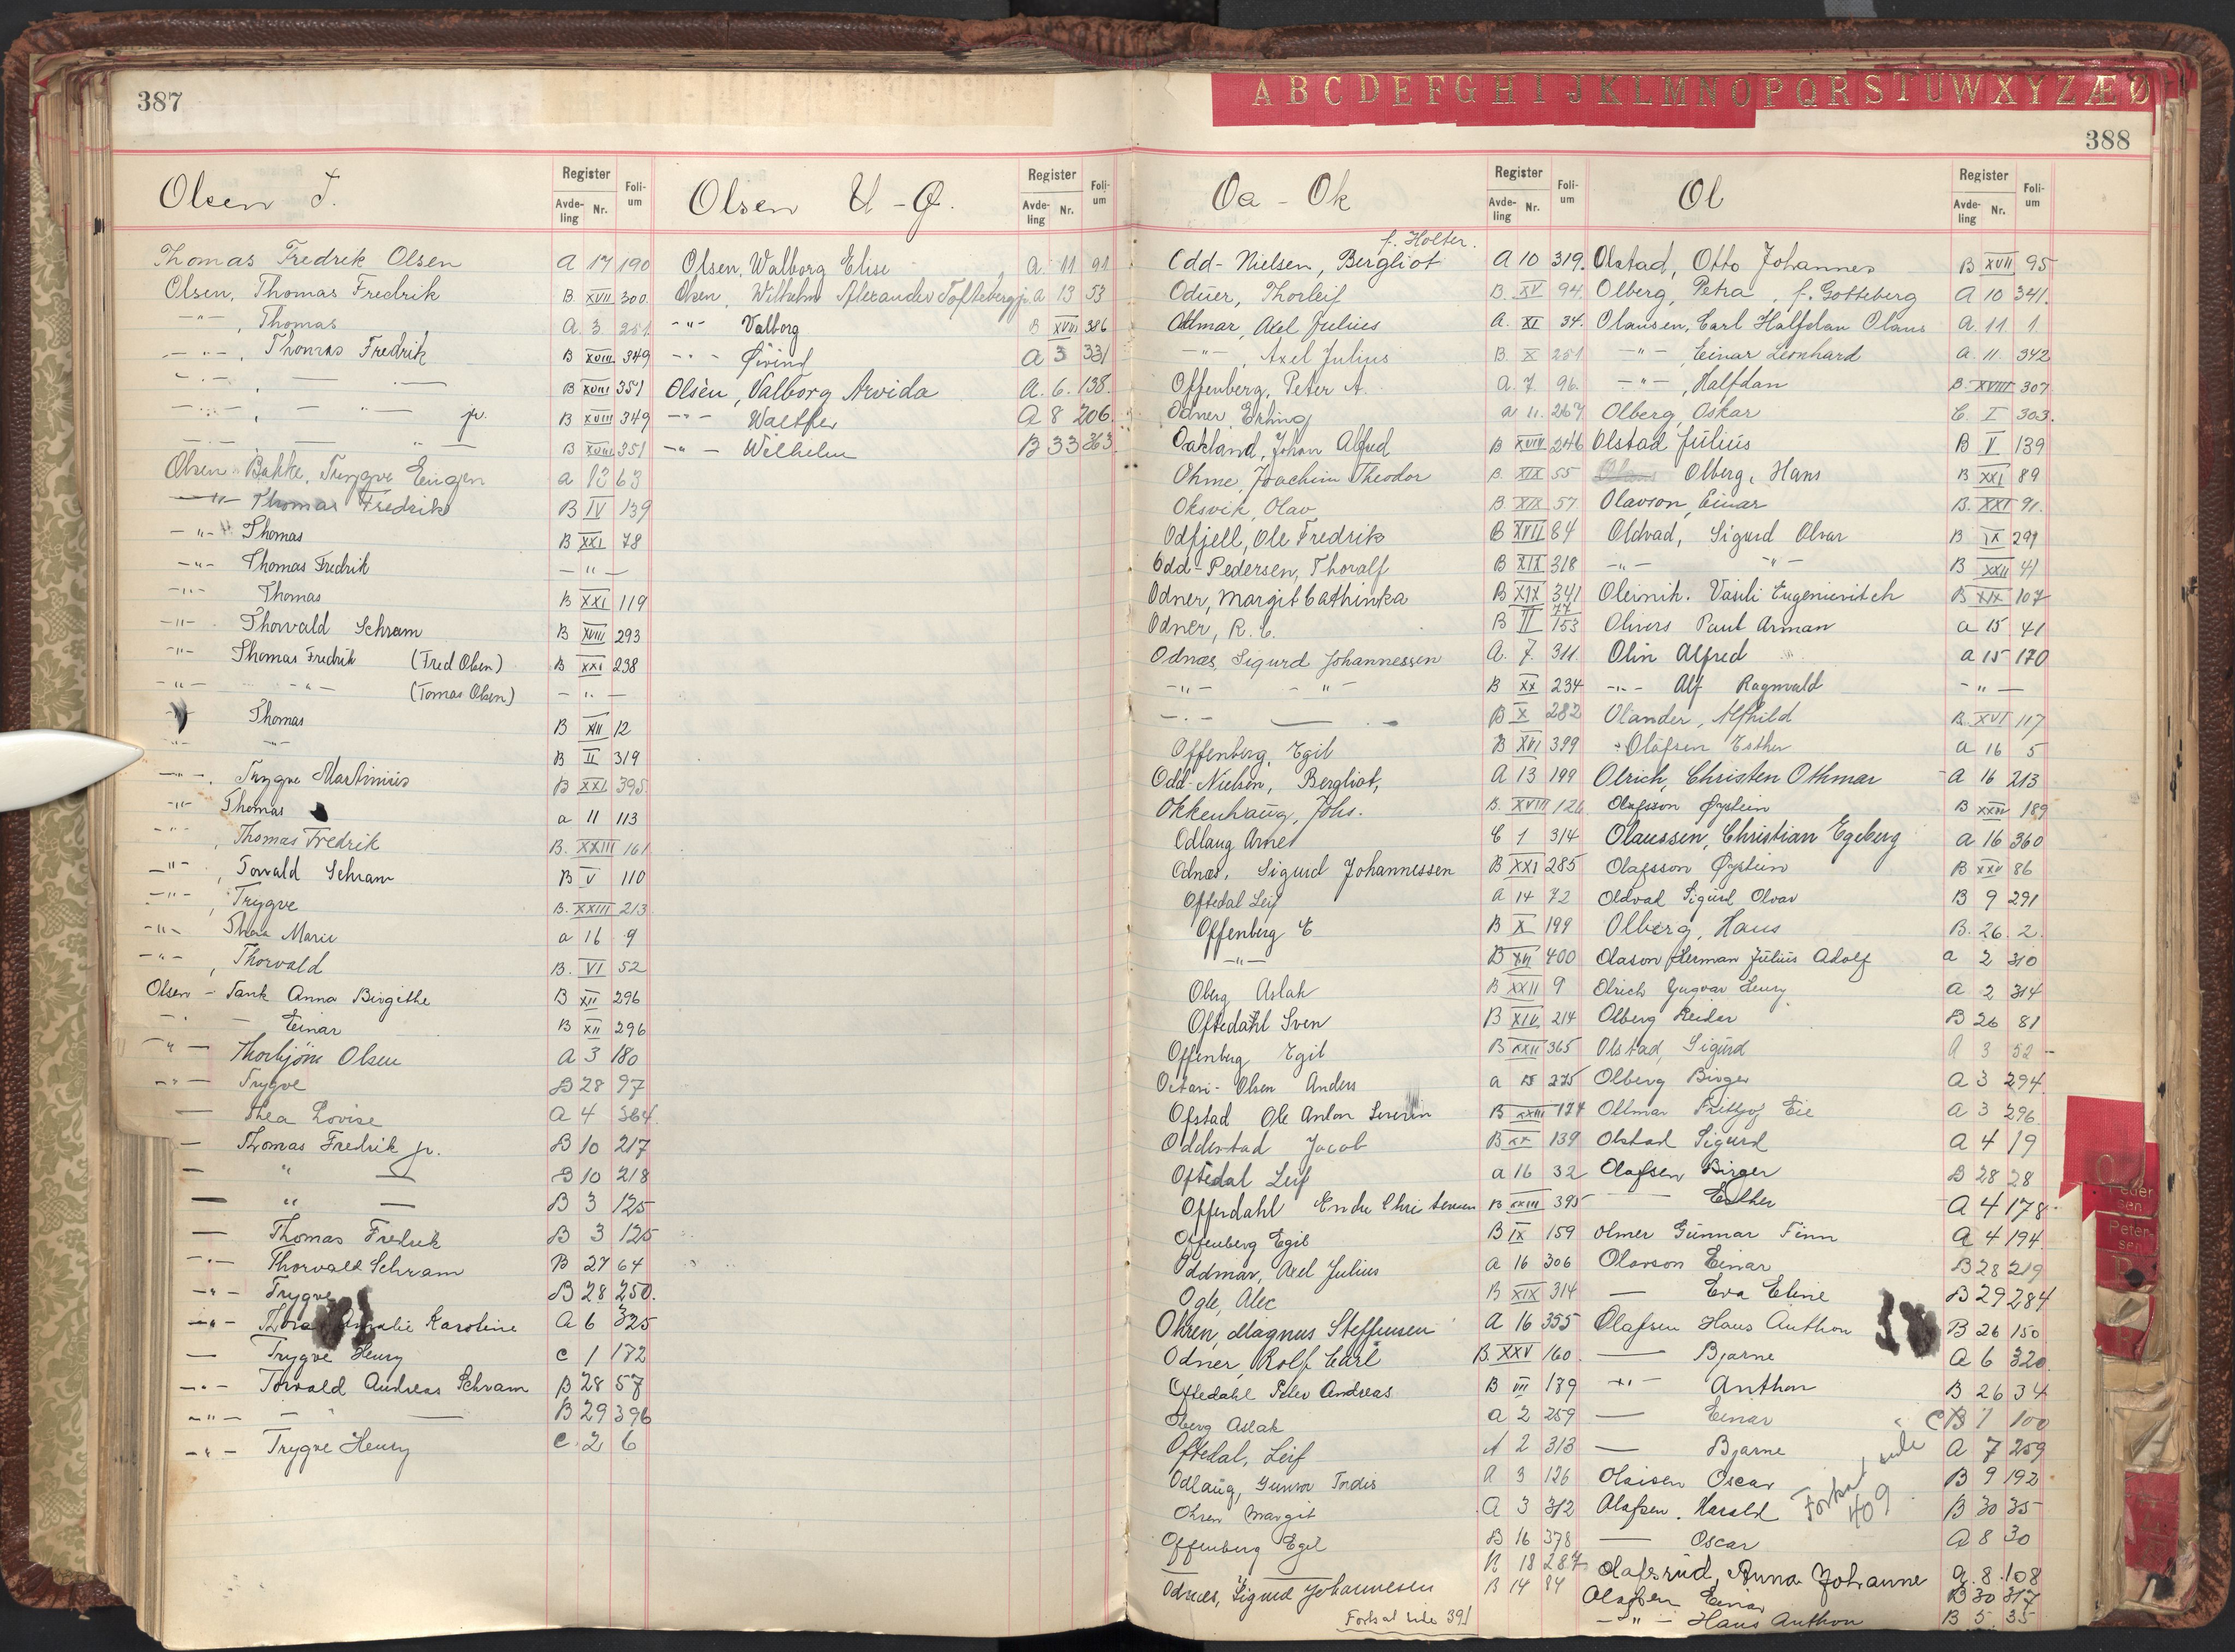 387
Olsen T.
Register
Avde-ling Nr. Foli-um
Thomas Fredrik Olsen A 17 190
Olsen, Thomas Fredrik B XVII 300
-"-, Thomas A. 3 251
-"-, Thomas Fredrik B XVIII 349
-"-, — B XVIII 351
-"-, — " — jr. B XVIII 349
— — " — B XVIII 351
Olsen Bakke, Trygve Eugen a 12 63
-"- Thomas Fredrik B IV 139
-"- Thomas B XXI 78
-"- Thomas Fredrik -"-
-"- Thomas B XXI 119
-"- Thorvald Schram B XVIII 293
-"- Thomas Fredrik (Fred Olsen) B XXI 238
-"- -"- (Tomas Olsen) -"-
Thomas B XII 12
-"- -"- B II 319
-"-, Trygve Martinius B XXI 395
-"- Thomas a 11 113
-"-, Thomas Fredrik B. XXIII 161
-"-, Torvald Schram B V 110
-"-, Trygve B. XXIII 213
-"- Thea Marie a 16 9
-"-, Thorvald B. VI 52
Olsen - Tank Anna Birgithe B XII 296
-"- — Einar B XII 296
-"- Thorbjørn Olsen A 3 180
-"- Trygve B 28 97
— Thea Lovise A 4 364
— Thomas Fredrik jr. B 10 217
— " — B 10 218
— " — B 3 125
— Thomas Fredrik B 3 125
-"- Thorvald Schram B 27 64
-"- Trygve B 28 250.
-"- Thora Amalie Karoline A 6 325
— Trygve Henry C 1 172
-"- Torvald Andreas Schram B 28 57
-"- — " — B 29 396
-"- Trygve Henry C. 2 6
Olsen U - Ø.
Register
Avde-ling Nr. Foli-um
Olsen, Walborg Elise A. 11 91
Olsen, Wilhelm Alexander Toftebergjr. A 13 53
-"- Valborg B XVIII 386
-"- Øivind A 3 331
Olsen, Valborg Arvida A. 6. 138.
-"- Walther A 8 206
-"- Wilhelm B 33 363
A B C D E F G H I J K L M N O P Q R S T U W X Y Z Æ Ø
388
Oa - Ok
Register
Avde-ling Nr. Foli-um
f. Holter.
Odd-Nielsen, Bergliot A 10 319.
Oduer, Thorleif B. XV 94
Odmar, Axel Julius A. XI 34.
-"-, Axel Julius B. X 251
Offenberg, Peter A. A. 7. 96.
Odner, Erling a 11. 267
Oakland, Johan Alfred B XVIII 246
Ohme, Joachim Theodor B. XIX 55
Oksvik, Olav B. XIX 57
Odfjell, Ole Fredrik B XVII 84
Odd-Pedersen, Thoralf B XIX 318
Odner, Margit Cathinka B XIX 341
Odner, R. C. B II 77 153
Odnæs, Sigurd Johannessen A. 7. 311.
-"- -"- B XX 234
-"- — B X 282
Offenberg, Egil B XVI 399
Odd-Nielsen, Bergliot, A 13 199
Okkenhaug, Johs. B. XVIII 126
Odlaug Arne C 1 314
Odnæs, Sigurd Johannessen B XXI 285
Oftedal Leif A 14 72
Offenberg E B X 199
-"- B XII 400
Oberg Aslak B XXII 9
Oftedahl Sven B XIV 214
Offenberg Egil B XXII 365
Octavi-Olsen Anders a 15 275
Ofstad Ole Anton Severin B XXIII 174
Odderstad Jacob B XX 139
Oftedal Leif a 16 32
Offerdahl Endre Christensen B XXIII 395
Offenberg Egil B IX 159
Oddmar, Axel Julius a 16 306
Ogle, Alec B XIX 314
Ohren, Magnus Steffensen A 16 355
Odner, Rolf Carl B. XXV 160
Oftedahl Peter Andreas B VII 189
Oberg Aslak a 2 259
Oftedal, Leif A 2 313
Odlaug, Gunvor Tordis A 3 126
Ohren Margit A 3 312
Offenberg Egil B 16 378
— B 18 287
Odnæs, Sigurd Johannesen B 14 84
Forts at side 391
Ol
Register
Avde-ling Nr. Foli-um
Olstad, Otto Johannes B XVII 95
Olberg, Petra, f. Gotteberg A 10 341.
Olausen, Carl Halfdan Olaus A. 11 1
-"-, Einar Leonhard A. 11 342
-"-, Halfdan B. XVIII 307
Olberg, Oskar C. I 303.
Olstad Julius B V 139
Olberg, Hans B XXI 89
Olavson, Einar B. XXI 91.
Oldvad, Sigurd Olvar B IX 291
-"- -"- B XXII 41
Oleinik. Vasili Eugenievitch B XIX 107
Olivers Paul Arman a 15 41
Olin Alfred a 15 170
-"- Alf Ragnvald -"-
Olander, Alfhild B. XVI 117
Olafsen Esther a 16 5
Olrich, Christen Othmar A 16 213
Olafsson Øystein B XXIV 189
Olaussen, Christian Egeberg a 16 360
Olafsson Øystein B XXV 86
Oldvad Sigurd Olvar B 9 291
Olberg, Hans B. 26. 2.
Olason Herman Julius Adolf a 2 310
Olrich Yngvar Henry A 2 314
Olberg Reidar B 26 81
Olstad, Sigurd A 3 52 -
Olberg Birger A 3 294
Ollmar Fritjof Eie A 3 296
Olstad Sigurd A 4 19
Olafsen Birger B 28 28
— Esther A 4 178
Olmer Gunnar Finn A 4 194
Olavson Einar B 28 219
— Eva Eline B 29 284
Olafsen Hans Anthon B 26 150
— Bjarne A 6 320.
-"- Anthon B 26 34
— Einar C 1 100
— Bjarne A 7 259
Olaisen Oscar B 9 192
Olafsen. Harald B 30 35
— Oscar A 8 30
Olafsrud, Anna Johanne A. 8. 108
Olafsen Einar B 30 317
-"- Hans Anthon B 5 35
Forts. side 409
Peder-sen
Peter-sen